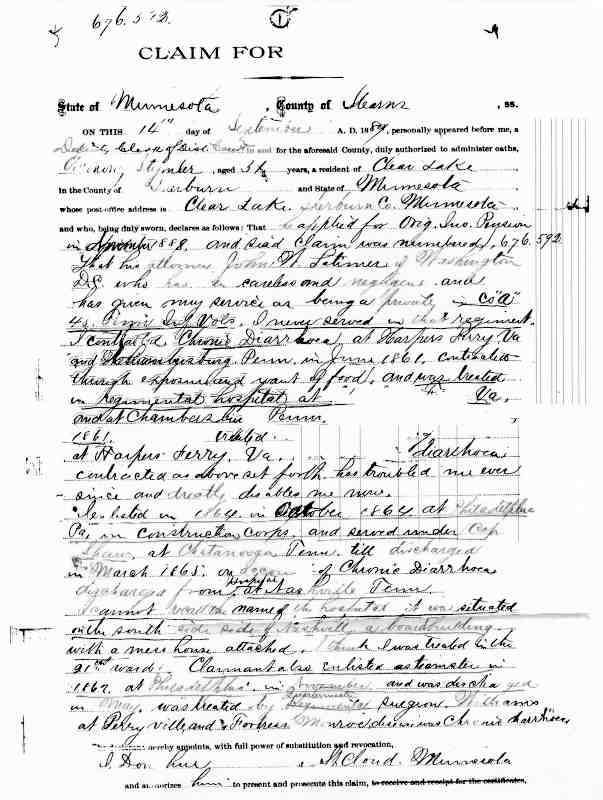 676.592.
1
CLAIM FOR
State of Minnesota, County of Stearns, ss.
ON THIS 14" day of A. D. 1889, personally appeared before me, a
Clerk of Dist Court in and for the aforesaid County, duly authorized to administer oaths,
aged years, a resident of Clear Lake
in the County of and State of Minnesota
whose post-office address is Clear Lake. Co. Minnesota
and who, being duly sworn, declares as follows: That he applied for Orig. Inv. Pension
in 1888, and said claim was numbered, 676,592
That his attorney John W. Latimer of Washington
D.C. who has in careless and negligent and
has given my service as being a private in Co "A"
Vols. I never served in that regiment.
I contracted Chronic Diarrhoea, at Harpers Ferry Va
and Penn. in June 1861. contracted
through exposure and want of food, and was treated
in regimental hospital at Va.
and at Penn.
1861. treated
at Harpers Ferry, Va. Diarrhoea
contracted as above set forth has troubled me ever
since and greatly disables me now.
Enlisted in 1864 in October 1864 at Philadelphia
Pa. in Construction Corps. and served under Cap
at Chatanooga Tenn. till discharged
in March 1865. on of Chronic Diarrhoea
discharged from hospital at Nashville Tenn
I cannot the name of the hospital it was situated
on the south side of Nashvill, a board building.
with a mess house attached. I think I was treated in the
21st ward. Claimant also enlisted as teamster in
at Philadelphia. in November and was discharged
in May, was treated by Surgeon. Williams
at Perryville, and Fortress Monroe disease was Chronic Diarrhoea,
hereby appoints, with full power of substitution and revocation,
St Cloud. Minnesota
and authorizes him to present and prosecute this claim, to receive and receipt for the certificates,